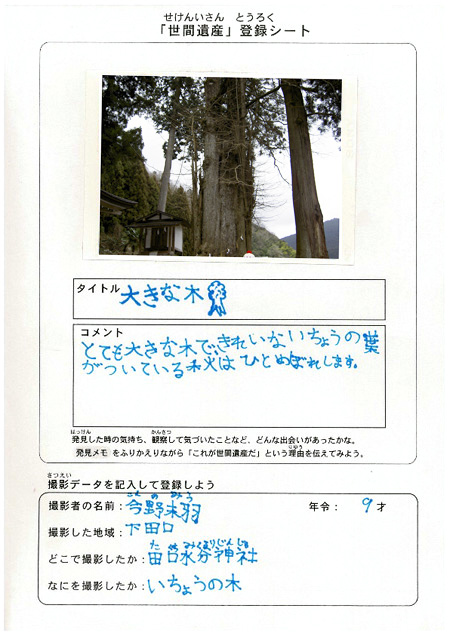 せけんいさん とうろく
「世間遺産」登録シート
タイトル 大きな木
コメント
とても大きな木で、きれいないちょうの葉
がついている秋はひとめぼれします。
はっけん かんさつ
発見した時の気持ち、観察して気づいたことなど、どんな出会いがあったかな。
りゆう
発見メモ をふりかえりながら「これが世間遺産だ」という理由を伝えてみよう。
さつえい
撮影データを記入して登録しよう
こん の みう
撮影者の名前：今野未羽 年令： 9 才
撮影した地域：下田口
た ぐち みくまりじんじゃ
どこで撮影したか：田口水分神社
なにを撮影したか：いちょうの木